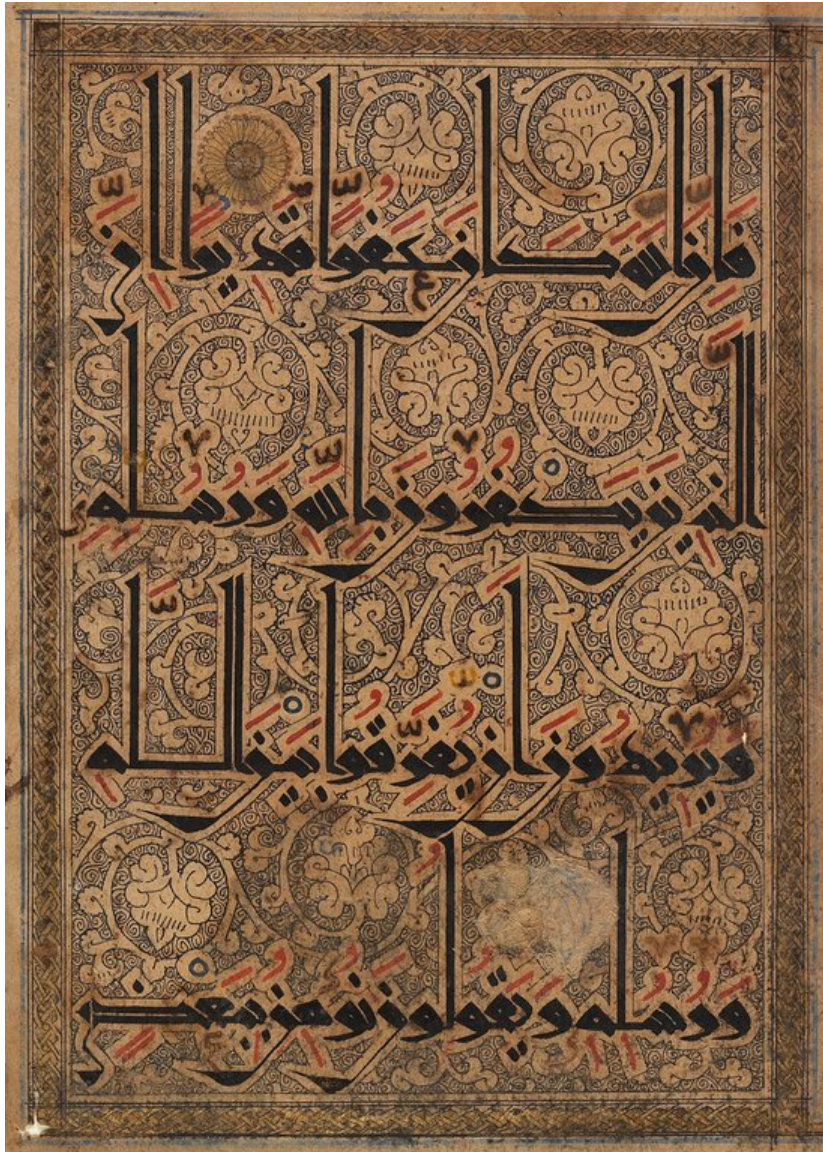 فَإِنَّ اللَّهَ كَانَ عَفُوًّا قَدِيرًا إِنَّ
الَّذِينَ يَكْفُرُونَ بِاللَّهِ وَرُسُلِهِ
وَيُرِيدُونَ أَنْ يُفَرِّقُوا بَيْنَ اللَّهِ
وَرُسُلِهِ وَيَقُولُونَ نُؤْمِنُ بِبَعْضٍ